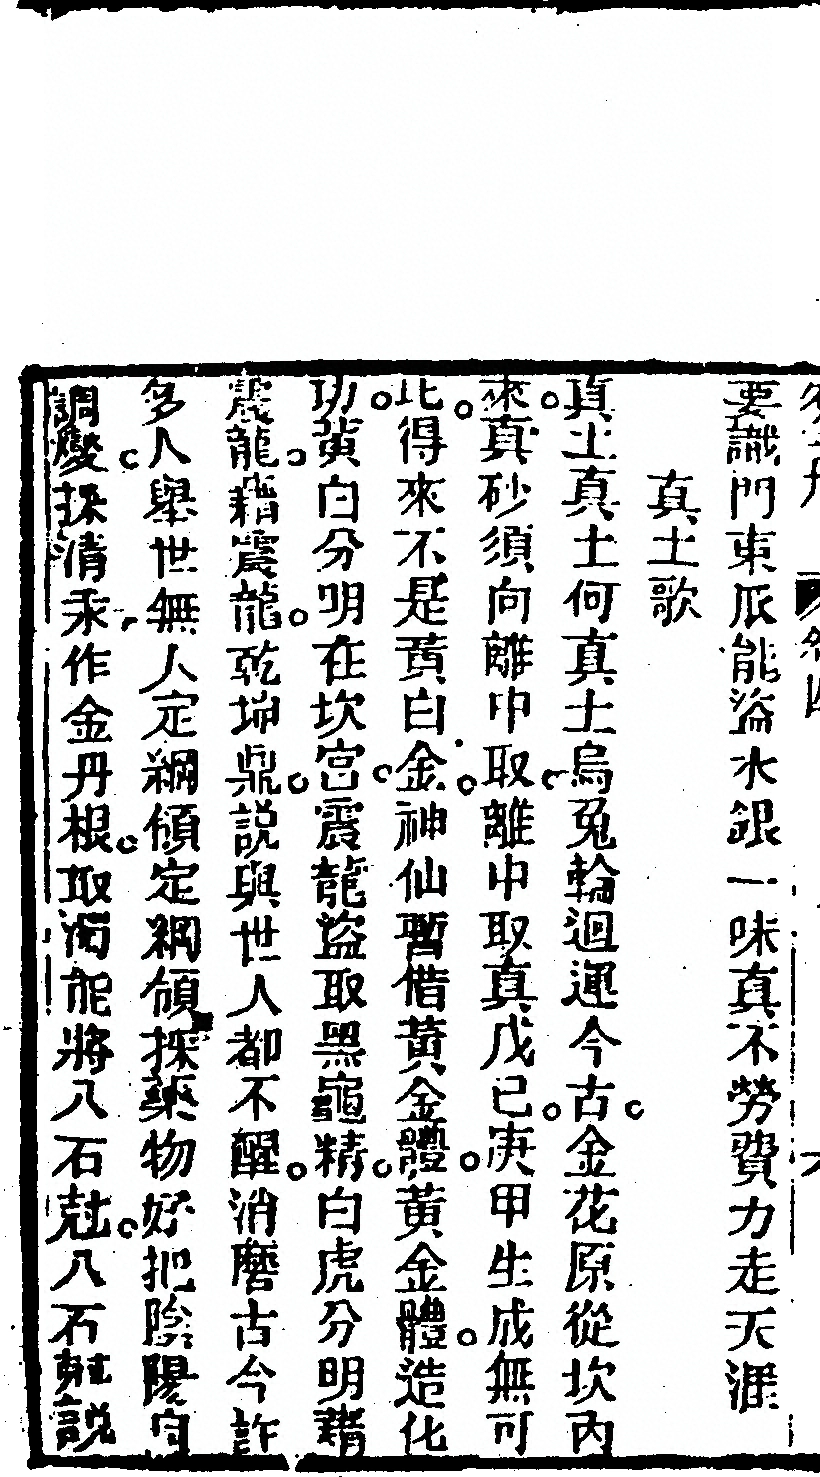 要識門東瓜能盗水銀一味真不勞費力走天涯
真土歌
真土真土何真土烏兔輪迴運今古金花原從坎內
來真砂須向離中取離中取真戊己庚甲生成無可
比得來不是黄白金神仙暫借黃金體黃金體造化
功黄白分明在坎宮震龍盜取黑龜精白虎分明藉
震龍藉震龍乾坤鼎說與世人都不醒消磨古今許
多人舉世無人定綱領定綱領採藥物好把陰陽自
調燮採清汞作金丹根取濁能將八石尅八石尅說